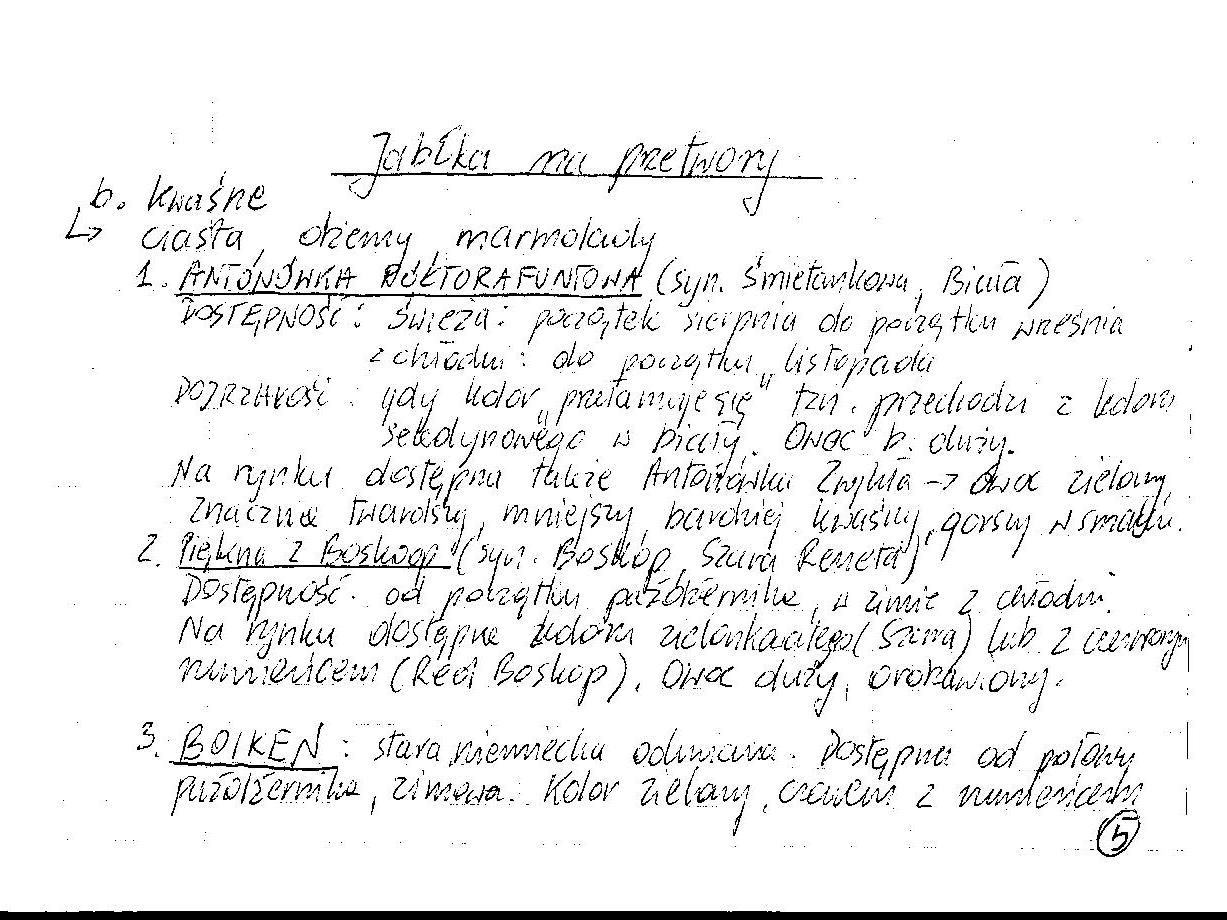 Jabłka na przetwory
b. kwaśne
↳ ciasta, dżemy, marmolady
1. ANTONÓWKA PÓŁTORAFUNTOWA (syn. Śmietankowa, Biała)
DOSTĘPNOŚĆ: świeża: początek sierpnia do początku września
z chłodni: do początku listopada
DOJRZAŁOŚĆ: gdy kolor „przełamuje się" tzn. przechodzi z koloru
seledynowego w biały. Owoc b. duży.
Na rynku dostępna także Antonówka Zwykła → owoc zielony,
znacznie twardszy, mniejszy, bardziej kwaśny, gorszy w smaku.
2. Piękna z Boskoop (syn. Boskop, Szara Reneta)
Dostępność: od początku października, w zimie z chłodni.
Na rynku dostępne koloru zielonkawego (Szara) lub z czerwonym
rumieńcem (Red Boskop). Owoc duży, ordzawiony.
3. BOIKEN: stara niemiecka odmiana. Dostępna od połowy
października, zimowa. Kolor zielony, czasem z rumieńcem
5